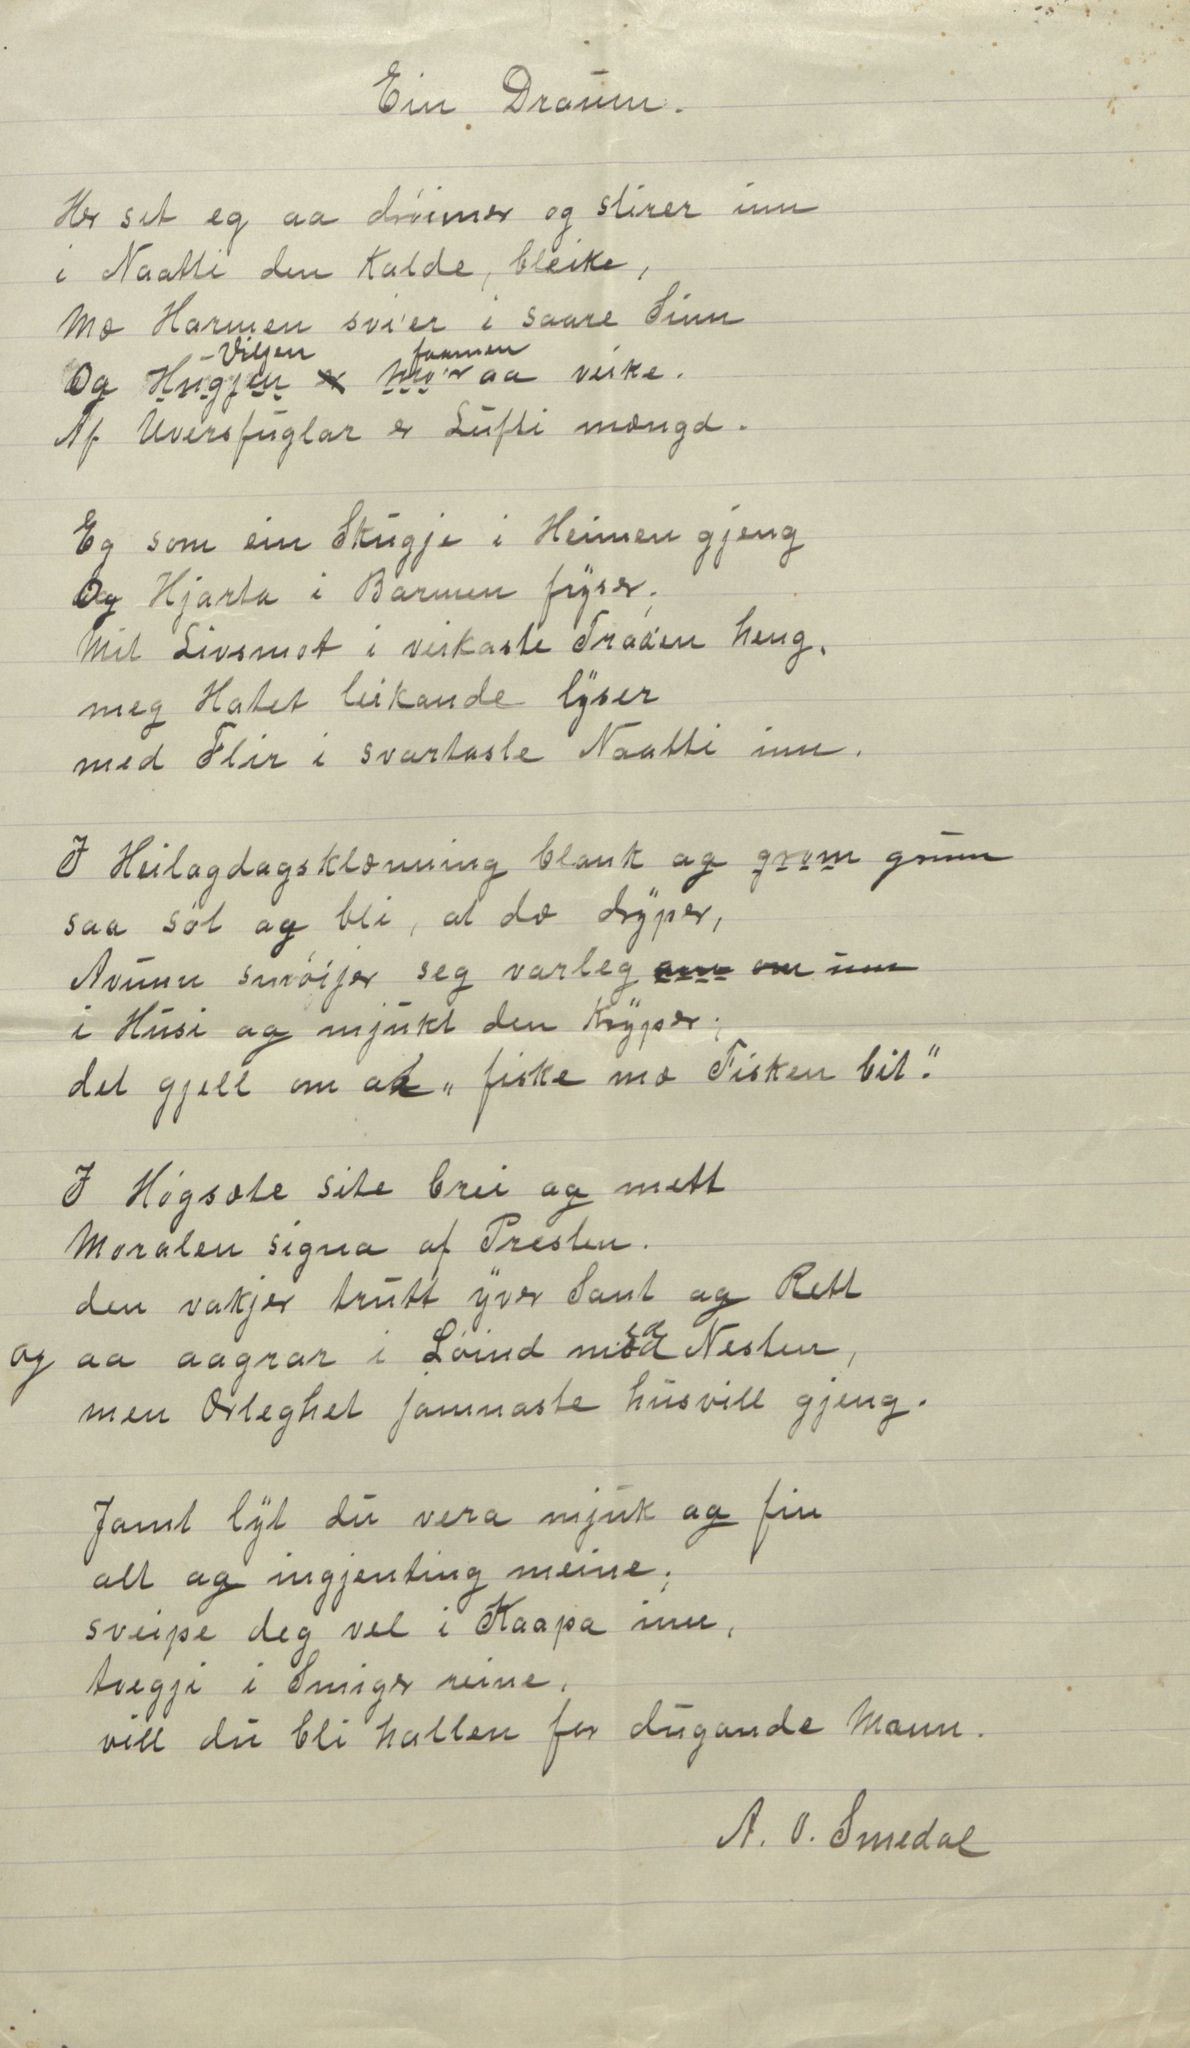 Ein Draum.
Her set eg aa drøimer og stirer inn
i Naatti den kalde, bleike,
Mæ Harmen svi'er i saare Sinn
Viljen faamen
Og Hugjen er mo'r aa veike.
Af Uversfuglar er Lufti mængd.
Eg som ein Skugje i Heimen gjeng
Og Hjarta i Barmen fryser,
Mit Livsmot i veikaste Traaen heng,
meg Hatet leikande lyser
med Flir i svartaste Naatti inn.
I Heilagdagsklænning blank og grom grunn
saa søt og bli, at dæ dryper,
Avunn smøijer seg varleg om inn
i Husi og mjukt den kryper;
det gjell om at „fiske mæ Fisken bit."
I Høgsæte site brei og mett
Moralen signa af Presten.
den vakjer trutt yver Sant og Rett
og aa aagrar i Løind mæ Nesten,
men Ærleghet jamnaste husvill gjeng.
Jamt lyt du vera mjuk og fin
alt og ingjenting meine;
sveipe deg vel i Kaapa inn,
tvegji i Smiger reine,
vill du bli hallen for dugande Mann.
A. O. Smedal